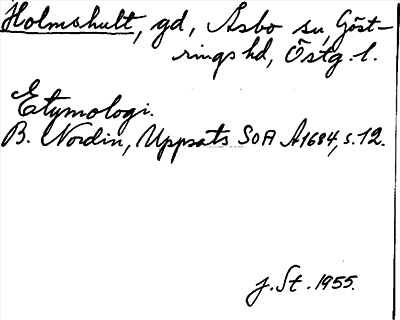 Holmshult, gd, Åsbo sn, Göst-
rings hd, Östg. l.
Etymologi.
B. Nordin, Uppsats SOA A1684, s. 12.
J. St. 1955.